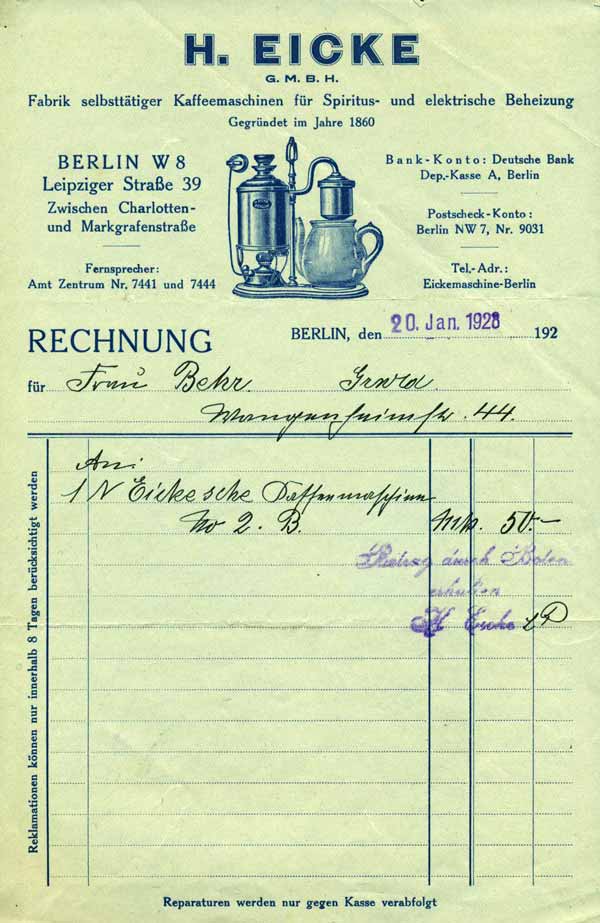 H. EICKE
G. M. B. H.
Fabrik selbsttätiger Kaffeemaschinen für Spiritus- und elektrische Beheizung
Gegründet im Jahre 1860
BERLIN W 8
Leipziger Straße 39
Zwischen Charlotten-
und Markgrafenstraße
Fernsprecher:
Amt Zentrum Nr. 7441 und 7444
Bank-Konto: Deutsche Bank
Dep.-Kasse A, Berlin
Postscheck-Konto:
Berlin NW 7, Nr. 9031
Tel.-Adr.:
Eickemaschine-Berlin
RECHNUNG
BERLIN, den 20. Jan. 1928 192
für Frau Behr
Wangenheimstr. 44.
An:
1 N Eickesche Kaffeemaschine
No 2. B. Mk. 50.-
Betrag durch Boten
erhalten
H. Eicke
Reklamationen können nur innerhalb 8 Tagen berücksichtigt werden
Reparaturen werden nur gegen Kasse verabfolgt